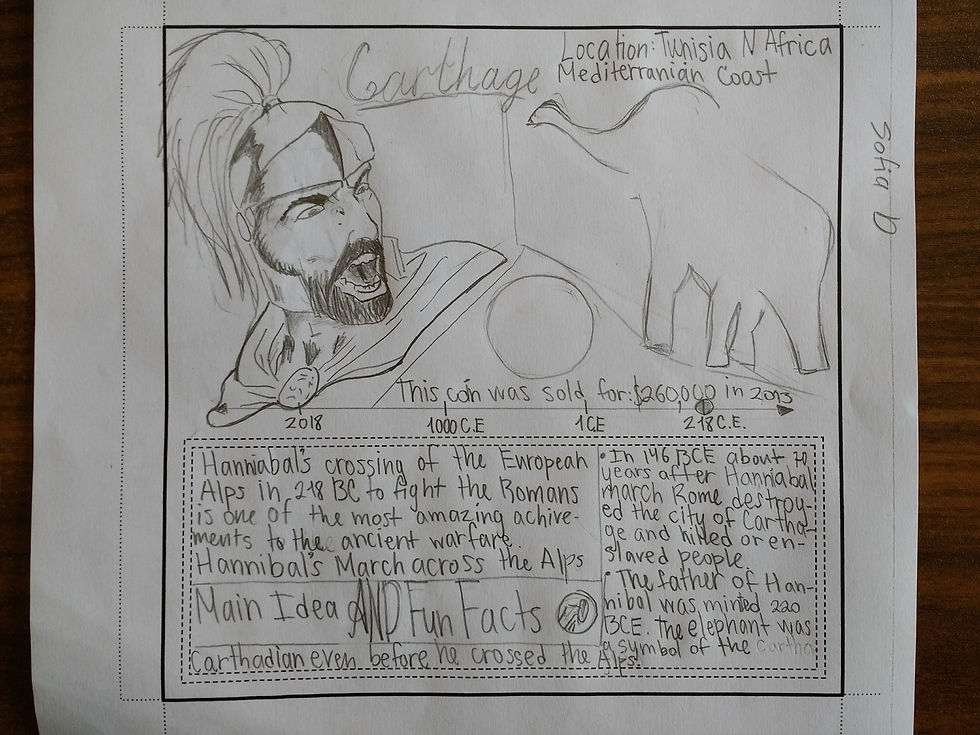 Carthage
Location: Tunisia N Africa
Mediterranian Coast
Sofia D
This coin was sold for: $260,000 in 2013
2018 1000 C.E 1 C.E 218 C.E.
Hanniabal's crossing of the European
Alps in 218 BC to fight the Romans
is one of the most amazing achive-
ments to the ancient warfare.
Hannibal's March across the Alps
Main Idea AND Fun Facts
Carthadian even before he crossed the Alps!
• In 146 BCE about 70
years after Hanniabal
march Rome destroy-
ed the city of Cartha-
ge and killed or en-
slaved people.
• The father of Han-
nibal was minted 220
BCE. The elephant was
a symbol of the Cartha